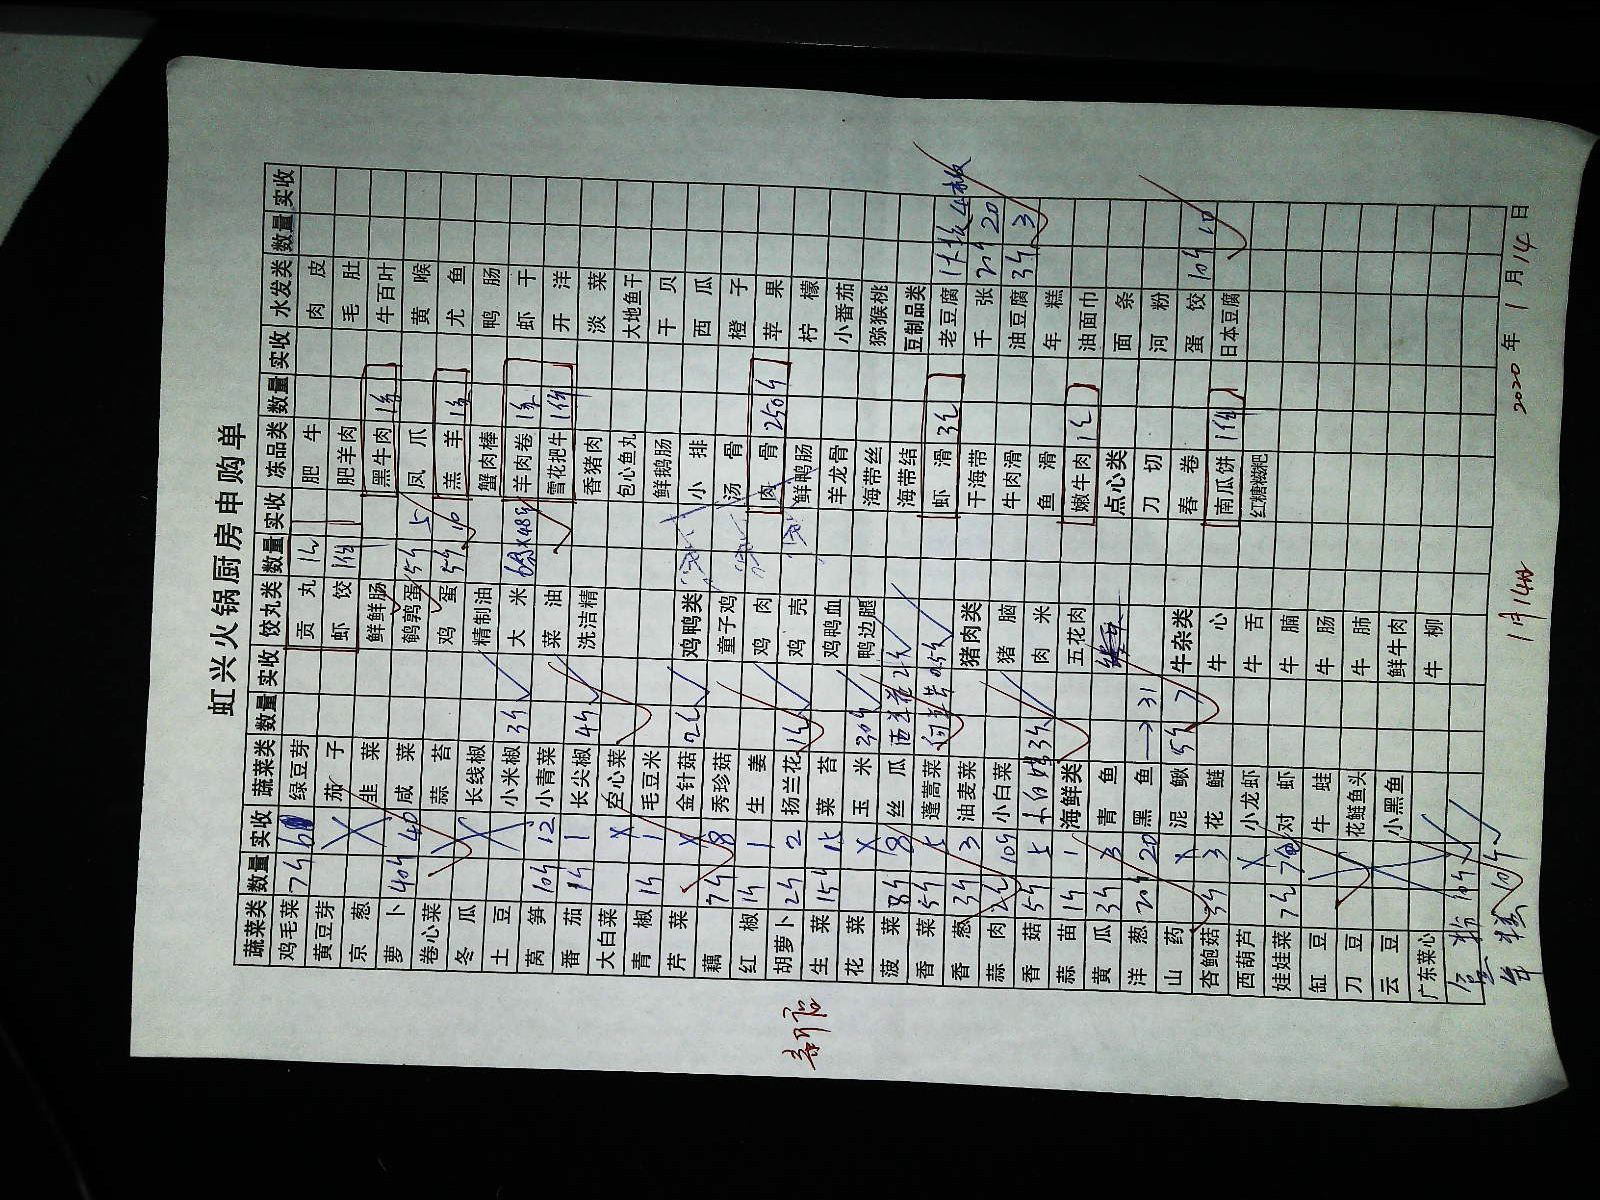 虹兴火锅厨房申购单
蔬菜类 数量 实收 蔬菜类 数量 实收 饺丸类 数量 实收 冻品类 数量 实收 水发类 数量 实收
鸡毛菜 7斤 绿豆芽 贡丸 肥牛 肉皮
黄豆芽 茄子 虾饺 1份 肥羊肉 毛肚
京葱 韭菜 鲜鲜肠 黑牛肉 1条 牛百叶
萝卜 40斤 40 咸菜 鹌鹑蛋 5斤 5 凤爪 黄喉
卷心菜 蒜苔 鸡蛋 5斤 10 羔羊 1条 尤鱼
冬瓜 长线椒 精制油 蟹肉棒 鸭肠
土豆 小米椒 3斤 大米 羊肉卷 1条 虾干
莴笋 10斤 12 小青菜 菜油 雪花把牛 1份 开洋
番茄 1斤 1 长尖椒 4斤 洗洁精 香猪肉 淡菜
大白菜 空心菜 包心鱼丸 大地鱼干
青椒 1斤 1 毛豆米 鲜鹅肠 干贝
芹菜 金针菇 鸡鸭类 小排 西瓜
藕 7斤 8 秀珍菇 童子鸡 汤骨 橙子
红椒 1斤 1 生姜 鸡肉 肉骨 250斤 苹果
胡萝卜 2斤 2 扬兰花 鸡壳 鲜鸭肠 柠檬
生菜 15斤 15 菜苔 鸡鸭血 羊龙骨 小番茄
花菜 玉米 30斤 鸭边腿 海带丝 猕猴桃
菠菜 8斤 8 丝瓜 海带结 豆制品类
香菜 5斤 5 蓬蒿菜 虾滑 3包 老豆腐 1大板 4板
香葱 3斤 3 油麦菜 猪肉类 干海带 千张 2斤 20
蒜肉 10斤 小白菜 猪脑 牛肉滑 油豆腐 3斤 3
香菇 5斤 5 3斤 肉米 鱼滑 年糕
蒜苗 1斤 1 海鲜类 五花肉 嫩牛肉 1包 油面巾
黄瓜 3斤 3 青鱼 点心类 面条
洋葱 20斤 20 黑鱼 31 刀切 河粉
山药 泥鳅 5斤 7 牛杂类 春卷 蛋饺 10斤 10
杏鲍菇 3斤 3 花鲢 牛心 南瓜饼 1份 日本豆腐
西葫芦 小龙虾 牛舌 红糖糍粑
娃娃菜 对虾 牛腩
缸豆 牛蛙 牛肠
刀豆 花鲢鱼头 牛肺
云豆 小黑鱼 鲜牛肉
广东菜心 牛柳
10斤
年糕 10斤 1月14日 2020年1月14日